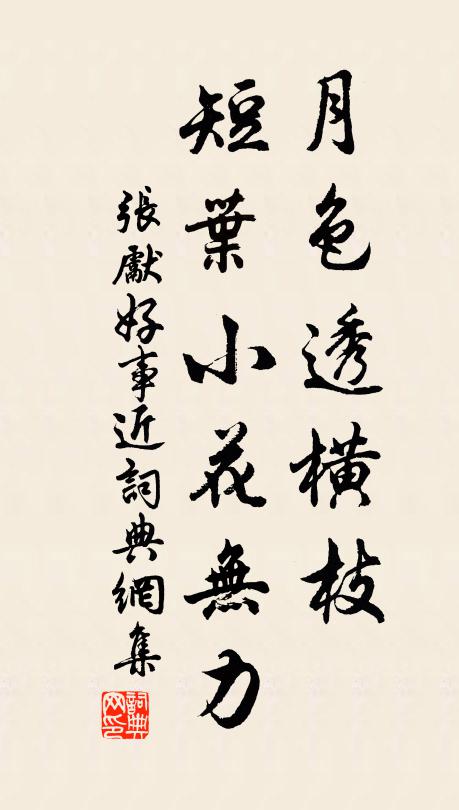 月色透橫枝
短葉小花無力
張獻好事近詞典網集
詞典網印